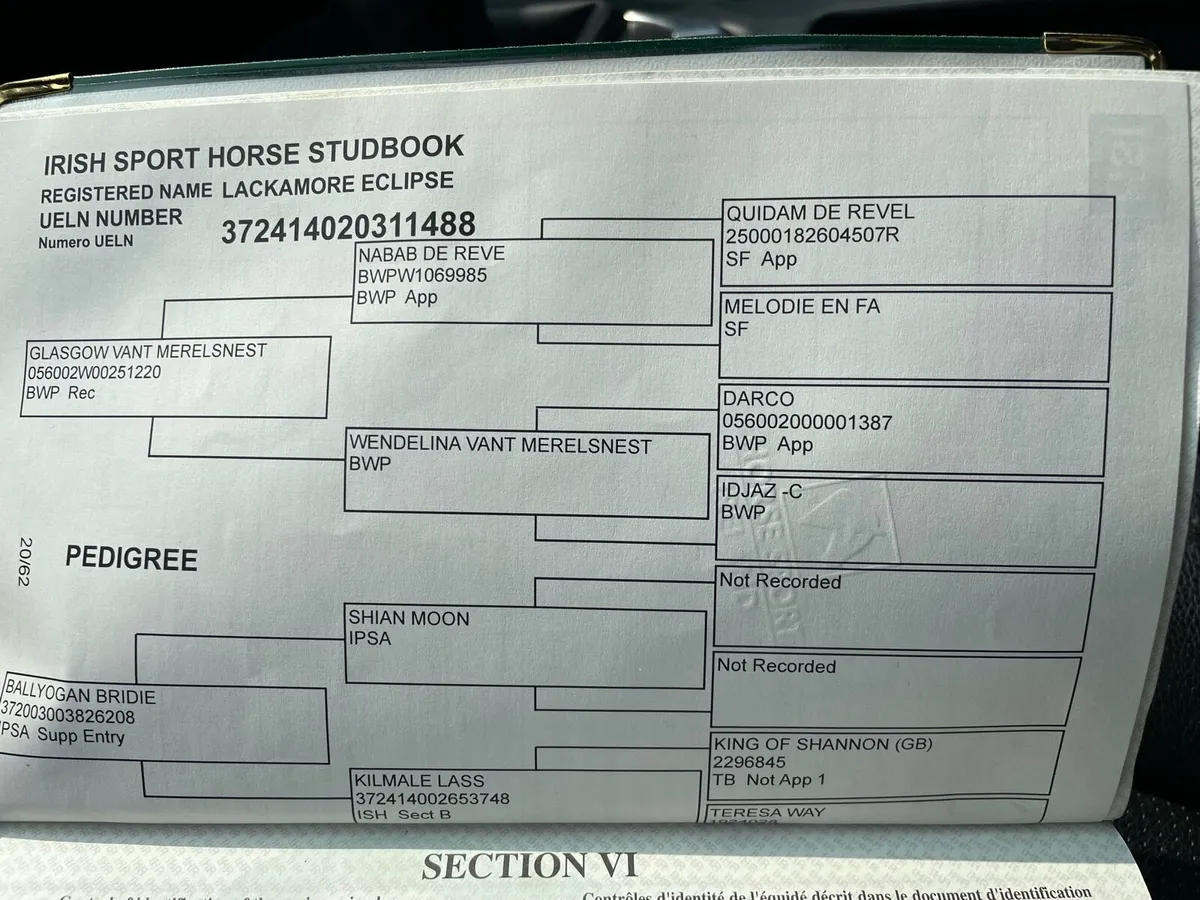 IRISH SPORT HORSE STUDBOOK
REGISTERED NAME LACKAMORE ECLIPSE
UELN NUMBER 372414020311488
Numero UELN
GLASGOW VANT MERELSNEST
056002W00251220
BWP Rec
NABAB DE REVE
BWPW1069985
BWP App
WENDELINA VANT MERELSNEST
BWP
QUIDAM DE REVEL
25000182604507R
SF App
MELODIE EN FA
SF
DARCO
056002000001387
BWP App
IDJAZ -C
BWP
20/62
PEDIGREE
BALLYOGAN BRIDIE
372003003826208
IPSA Supp Entry
SHIAN MOON
IPSA
KILMALE LASS
372414002653748
ISH Sect B
Not Recorded
Not Recorded
KING OF SHANNON (GB)
2296845
TB Not App 1
TERESA WAY
SECTION VI
Contrôles d'identité de l'équidé décrit dans le document d'identification